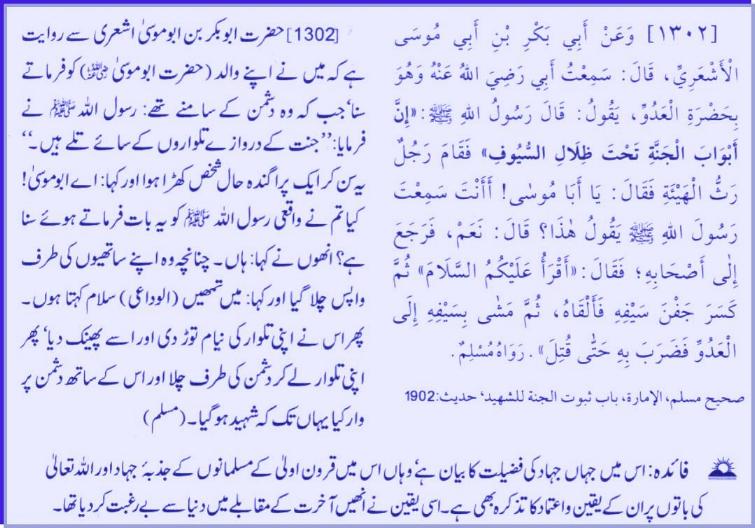 [١٣٠٢] وَعَنْ أَبِي بَكْرِ بْنِ أَبِي مُوسَى
الْأَشْعَرِيِّ، قَالَ: سَمِعْتُ أَبِي رَضِيَ اللهُ عَنْهُ وَهُوَ
بِحَضْرَةِ الْعَدُوِّ، يَقُولُ: قَالَ رَسُولُ اللهِ ﷺ: «إِنَّ
أَبْوَابَ الْجَنَّةِ تَحْتَ ظِلَالِ السُّيُوفِ» فَقَامَ رَجُلٌ
رَثُّ الْهَيْئَةِ فَقَالَ: يَا أَبَا مُوسَى! أَأَنْتَ سَمِعْتَ
رَسُولَ اللهِ ﷺ يَقُولُ هٰذَا؟ قَالَ: نَعَمْ، فَرَجَعَ
إِلٰى أَصْحَابِهِ؛ فَقَالَ: «أَقْرَأُ عَلَيْكُمُ السَّلَامَ» ثُمَّ
كَسَرَ جَفْنَ سَيْفِهِ فَأَلْقَاهُ، ثُمَّ مَشٰى بِسَيْفِهِ إِلَى
الْعَدُوِّ فَضَرَبَ بِهِ حَتّٰى قُتِلَ». رَوَاهُ مُسْلِمٌ.
صحیح مسلم، الإمارة، باب ثبوت الجنة للشهيد، حدیث:1902
[1302] حضرت ابوبکر بن ابوموسیٰ اشعری سے روایت
ہے کہ میں نے اپنے والد (حضرت ابوموسیٰ ؓ) کو فرماتے
سنا، جب کہ وہ دشمن کے سامنے تھے: رسول اللہ ﷺ نے
فرمایا: ’’جنت کے دروازے تلواروں کے سائے تلے ہیں۔‘‘
یہ سن کر ایک پراگندہ حال شخص کھڑا ہوا اور کہا: اے ابوموسیٰ!
کیا تم نے واقعی رسول اللہ ﷺ کو یہ بات فرماتے ہوئے سنا
ہے؟ انھوں نے کہا: ہاں۔ چنانچہ وہ اپنے ساتھیوں کی طرف
واپس چلا گیا اور کہا: میں تمھیں (الوداعی) سلام کہتا ہوں۔
پھر اس نے اپنی تلوار کی نیام توڑ دی اور اسے پھینک دیا، پھر
اپنی تلوار لے کر دشمن کی طرف چلا اور اس کے ساتھ دشمن پر
وار کیا یہاں تک کہ شہید ہوگیا۔ (مسلم)
فائدہ: اس میں جہاں جہاد کی فضیلت کا بیان ہے، وہاں اس میں قرون اولیٰ کے مسلمانوں کے جذبۂ جہاد اور اللہ تعالیٰ
کی باتوں پر ان کے یقین و اعتماد کا تذکرہ بھی ہے۔ اسی یقین نے انھیں آخرت کے مقابلے میں دنیا سے بے رغبت کر دیا تھا۔